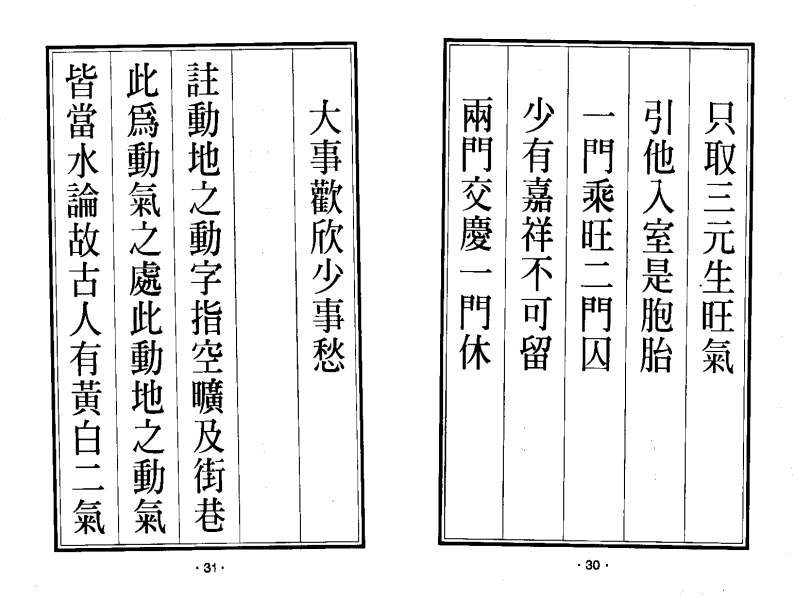 只取三元生旺氣
引他入室是胞胎
一門乘旺二門囚
少有嘉祥不可留
兩門交慶一門休
·30·
大事歡欣少事愁
註動地之動字指空曠及街巷
此爲動氣之處此動地之動氣
皆當水論故古人有黃白二氣
·31·